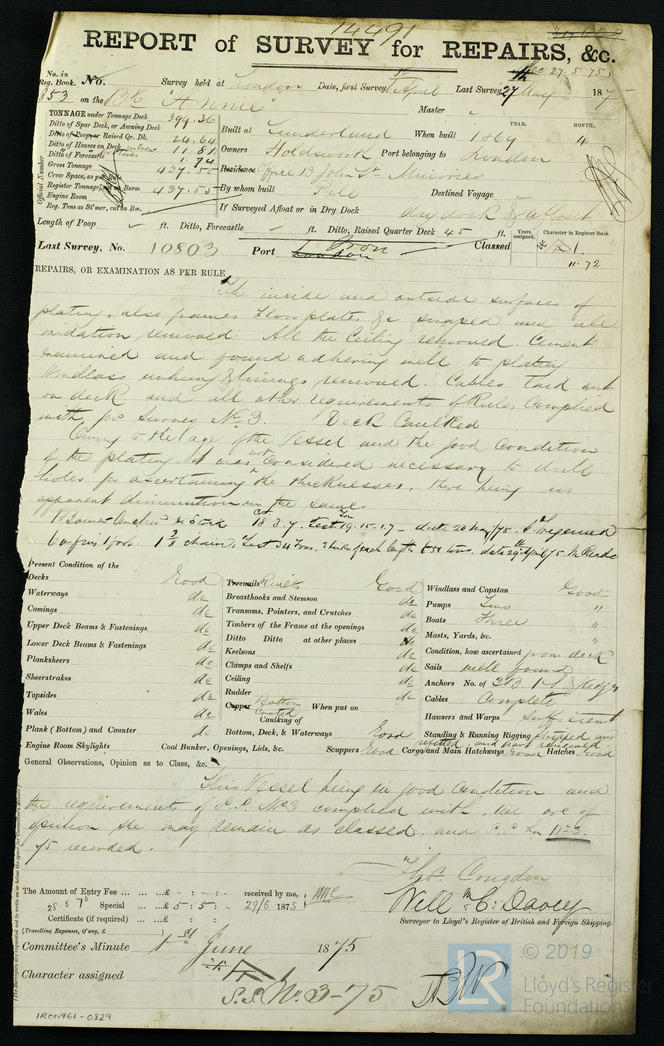 14491
REPORT of SURVEY for REPAIRS, &c.
Rec 27.5.75
No. in Reg. Book. No. Survey held at London Date, first Survey 5 April Last Survey 27 May 1875
853 on the Bk "Annie" Master
TONNAGE under Tonnage Deck 399.36
Ditto of Spar Deck, or Awning Deck
Ditto of Poop or Raised Qr. Dk. 24.64
Ditto of Houses on Deck 11.81
Ditto of Forecastle 1.74
Gross Tonnage 437.55
Crew Space, as per
Register Tonnage, 437.55
Engine Room
Reg. Tons as St'mer, cut on Bm.
Official Number
Built at Sunderland When built YEAR. 1869 MONTH. 4
Owners Holdsworth Port belonging to London
Residence Office 13 John St Minories
By whom built Pile Destined Voyage
If Surveyed Afloat or in Dry Dock dry dock & afloat
Length of Poop ft. Ditto, Forecastle ft. Ditto, Raised Quarter Deck 45 ft.
Years assigned. Character in Register Book.
Last Survey, No. 10803 Port London Iron Classed A1.
11.72
REPAIRS, OR EXAMINATION AS PER RULE,
The inside and outside surfaces of
plating, also frames floorplates &c scraped and all
oxidation removed. All the Ceiling removed. Cement
examined and found adhering well to plating
Windlass unhung & linings removed. Cables taed out
on deck and all other requirements of Rules complied
with, for Survey No. 3. Deck Caulked
Owing to the age of the Vessel and the good condition
of the plating, it was not considered necessary to drill
holes for ascertaining the thicknesses, there being no
apparent diminution in the same
1 Bower Anchor 18.3.7 test 19.15.1.7 date 20 May/75
Present Condition of the
Decks Good
Waterways do
Comings do
Upper Deck Beams & Fastenings do
Lower Deck Beams & Fastenings do
Planksheers do
Sheerstrakes do
Topsides do
Wales do
Plank (Bottom) and Counter do
Engine Room Skylights Coal Bunker, Openings, Lids, &c. Scuppers Good Cargo and Main Hatchways Good Hatches Good
Treenails Rivets Good
Breasthooks and Stemson do
Transoms, Pointers, and Crutches do
Timbers of the Frame at the openings do
Ditto Ditto at other places do
Keelsons do
Clamps and Shelfs do
Ceiling do
Rudder do
Copper Bottom Coated When put on
Caulking of
Bottom, Deck, & Waterways Good
Windlass and Capstan Good
Pumps Two "
Boats Three "
Masts, Yards, &c. "
Condition, how ascertained from deck
Sails well found
Anchors No. of 3 B. 1 S. & Kedges
Cables Complete
Hawsers and Warps Sufficient
Standing & Running Rigging stripped and
refitted, and part renewed
General Observations, Opinion as to Class, &c.
This Vessel being in good Condition and
the requirements of S.S. No 3 complied with, we are of
opinion she may remain as classed, and S.S. Ln No 3.
75 recorded.
Thos. Congdon
The Amount of Entry Fee ... ... ... £ : : received by me,
28 5 75 Special ... ... £ 5 : 5 : 29/5 1875
Certificate (if required) ... ... £ : :
(Travelling Expenses, if any, £
Will m C: Davey
Surveyor to Lloyd's Register of British and Foreign Shipping.
Committee's Minute 1st June 1875
Character assigned
S.S. No 3-75
© 2019
LR
Lloyd's Register
Foundation
IRON461-0329